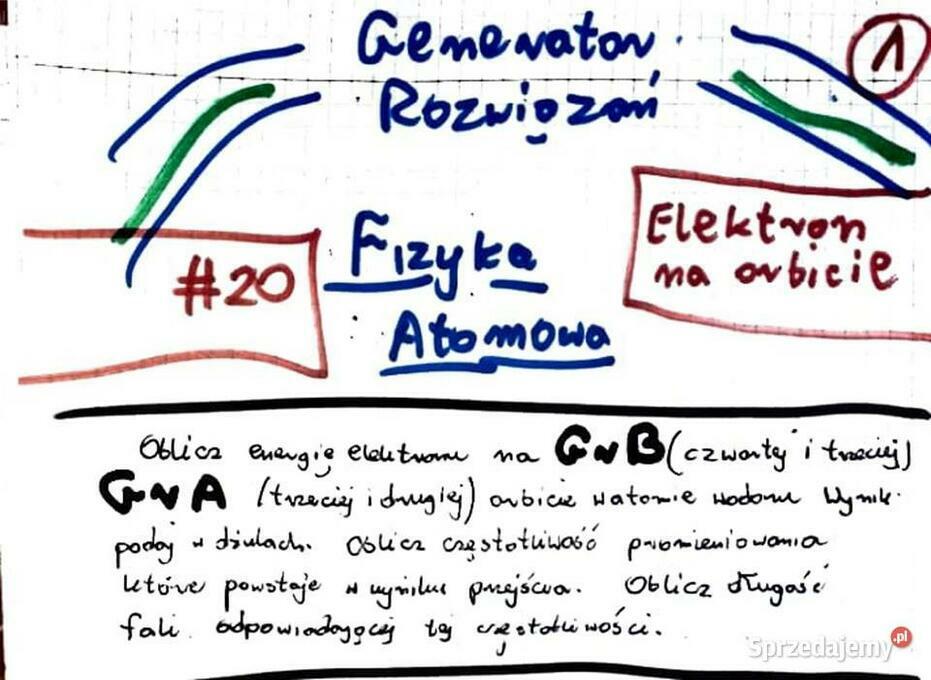 Generator
Rozwiązań
1
#20
Fizyka
Atomowa
Elektron
na orbicie
Oblicz energię elektronu na GrB (czwartej i trzeciej)
GrA (trzeciej i drugiej) orbicie w atomie wodoru Wynik
podaj w dżulach. Oblicz częstotliwość promieniowania
które powstaje w wyniku przejścia. Oblicz długość
fali odpowiadającej tej częstotliwości.
Sprzedajemy.pl